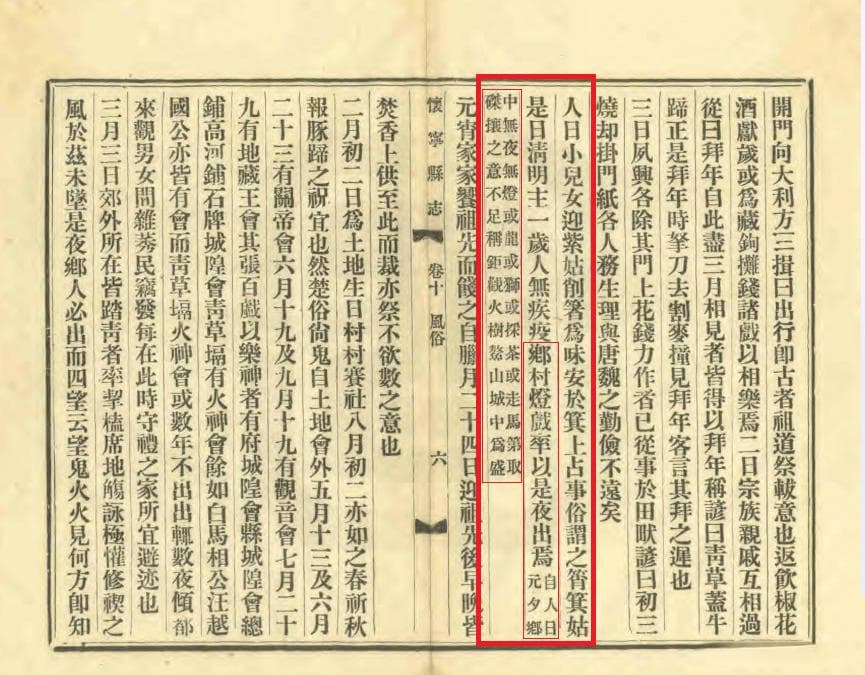 開門向大利方三揖曰出行卽古者祖道祭軷意也返飮椒花
酒獻歲或爲藏鉤攤錢諸戲以相樂焉二日宗族親戚互相過
從曰拜年自此盡三月相見者皆得以拜年稱諺曰靑草蓋牛
蹄正是拜年時拏刀去割麥撞見拜年客言其拜之遲也
三日夙興各除其門上花錢力作者已從事於田畎諺曰初三
燒却掛門紙各人務生理與唐魏之勤儉不遠矣
人日小兒女迎紫姑削箸爲味安於箕上占事俗謂之筲箕姑
是日淸明主一歲人無疾疫鄉村燈戲率以是夜出焉
自人日
元夕鄉
中無夜無燈或龍或獅或採茶或走馬第取
磔攘之意不足稱鉅觀火樹鰲山城中爲盛
元宵家家饗祖先而餕之自臘月二十四日迎祖先後早晚皆
懷寧縣志 卷十 風俗 六
焚香上供至此而裁亦祭不欲數之意也
二月初二日爲土地生日村村賽社八月初二亦如之春祈秋
報豚蹄之祝宜也然楚俗尙鬼自土地會外五月十三及六月
二十三有關帝會六月十九及九月十九有觀音會七月二十
九有地藏王會其張百戲以樂神者有府城隍會縣城隍會總
鋪高河鋪石牌城隍會靑草塥有火神會餘如白馬相公汪越
國公亦皆有會而靑草塥火神會或數年不出出輒數夜傾都
來觀男女間雜莠民竊發每在此時守禮之家所宜避迹也
三月三日郊外所在皆踏靑者率挈榼席地觴詠極懽修禊之
風於茲未墜是夜鄉人必出而四望云望鬼火火見何方卽知